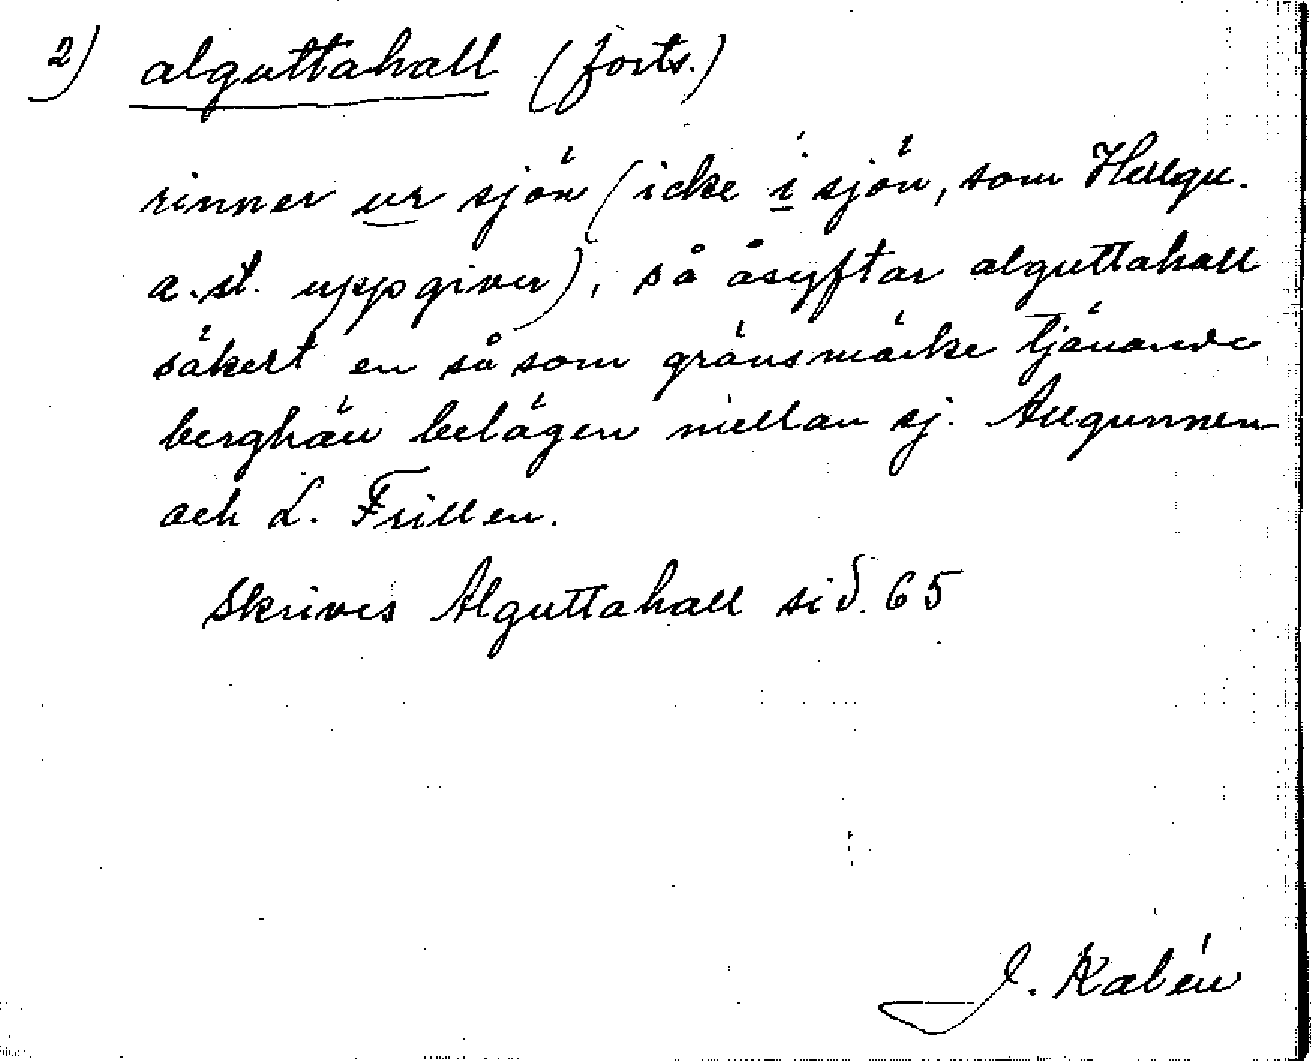 2) alguttahall (forts.)
rinner ur sjön (icke i sjön, som Hellqu.
a. st. uppgiver), så åsyftar alguttahall
säkert en så som gränsmärke tjänande
berghäll belägen mellan sj. Allgunnen
och L. Frillen.
Skrives Alguttahall sid. 65
J. Kalén